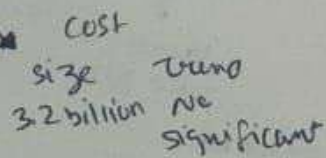 cost
size trend
3.2 billion No
significant